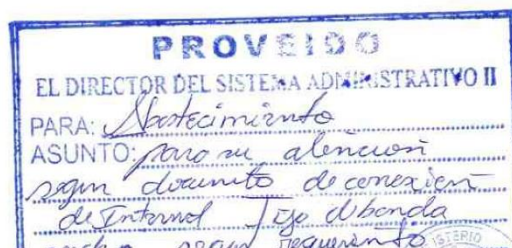 PROVEIDO
EL DIRECTOR DEL SISTEMA ADMINISTRATIVO II
PARA: Abastecimiento
ASUNTO: para su atención
segun documento de conexion
de Internet fijo
segun requerimiento